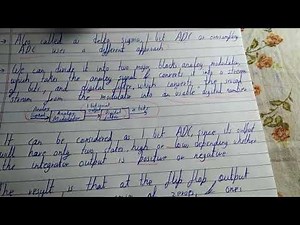 → Also called as delta sigma / 1 bit ADC or oversampling
ADC uses a different approach.
→ We can divide it into two major blocks analog modulator
which takes the analog signal & converts it into a stream
of bits, and digital filter, which converts the
stream from the modulator into an usable digital number
It can be considered as 1 bit ADC, since it called
will have only two states high or low depending whether
the integrator output is positive or negative
The result is that at the flip flop output
of zeroes & ones